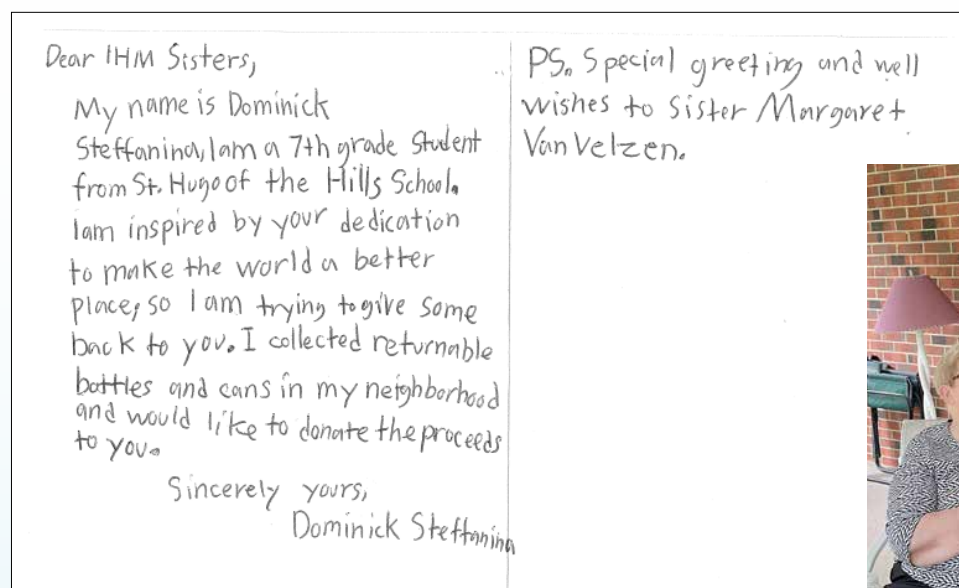 Dear IHM Sisters,
My name is Dominick
Steffanina, I am a 7th grade Student
from St. Hugo of the Hills School.
I am inspired by your dedication
to make the world a better
place, so I am trying to give some
back to you. I collected returnable
bottles and cans in my neighborhood
and would like to donate the proceeds
to you.
Sincerely yours,
Dominick Steffanina
PS. Special greeting and well
wishes to Sister Margaret
Van Velzen.